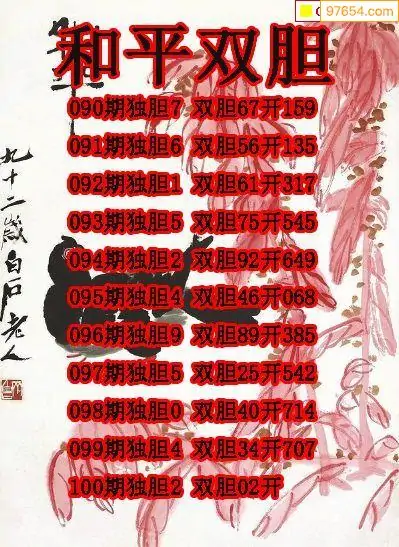 97654.com
和平双胆
090期独胆7 双胆67开159
091期独胆6 双胆56开135
092期独胆1 双胆61开317
093期独胆5 双胆75开545
094期独胆2 双胆92开649
095期独胆4 双胆46开068
096期独胆9 双胆89开385
097期独胆5 双胆25开542
098期独胆0 双胆40开714
099期独胆4 双胆34开707
100期独胆2 双胆02开
九十二岁白石老人